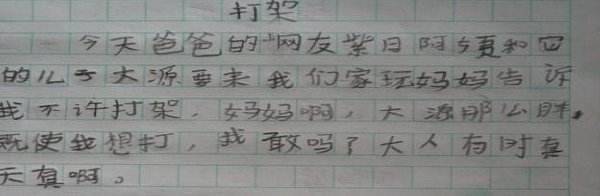 打架
今天爸爸的网友紫日阿须和它
的儿子大源要来我们家玩妈妈告诉
我不许打架，妈妈啊，大源那么胖，
既使我想打，我敢吗？大人有时真
天真啊。